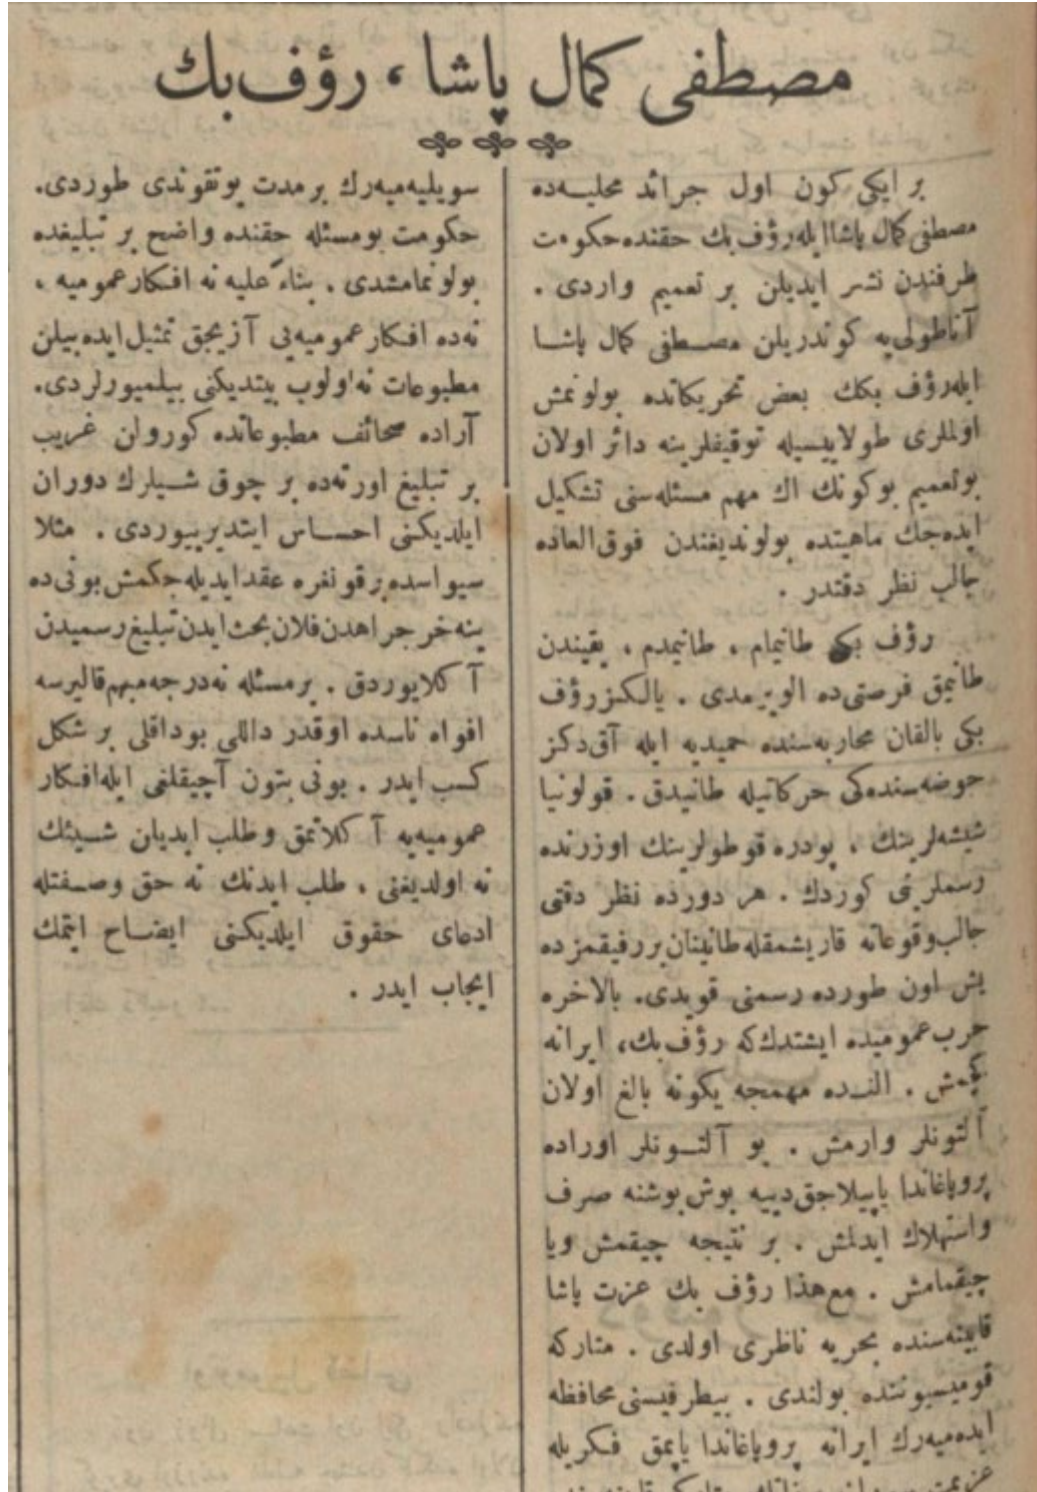 مصطفى كمال پاشا ، رؤف بك
بر ايكى كون اول جرائد محليه‌ده
مصطفى كمال پاشا ايله رؤف بك حقنده حكومت
طرفندن نشر ايديلن بر تعميم واردى .
آناطولى‌يه كوندريلن مصطفى كمال پاشا
ايله رؤف بكك بعض تحريكاتده بولونمش
اولملرى طولاييسيله توقيفلرينه دائر اولان
بو تعميم بوكونك اك مهم مسئله‌سنى تشكيل
ايده‌جك ماهيتده بولونديغندن فوق العاده
جالب نظر دقتدر .
رؤف بكى طانيمام ، طانيمدم ، يقيندن
طانيمق فرصتى ده الويرمدى . يالكز رؤف
بكى بالقان محاربه‌سنده حميديه ايله آق دكز
حوضه‌سنده‌كى حركاتيله طانيدق . قولونيا
شيشه‌لرينك ، پودره قوطولرينك اوزرنده
رسملرينى كوردك . هر دورده نظر دقتى
جالب وقوعاته قاريشمقله طانينان بر رفيقمزده
بش اون طورده رسمنى قويدى. بالاخره
حرب عموميده ايشتدك كه رؤف بك، ايرانه
كچمش . النده مهمجه يكونه بالغ اولان
آلتونلر وارمش . بو آلتونلر اوراده
پروپاغاندا ياپيلاجق دييه بوش بوشنه صرف
واستهلاك ايدلمش . بر نتيجه چيقمش ويا
چيقمامش . مع هذا رؤف بك عزت پاشا
قابينه‌سنده بحريه ناظرى اولدى . متاركه
قوميسيوننده بولندى . بيطرفيسنى محافظه
ايده‌ميه‌رك ايرانه پروپاغاندا ياپمق فكريله
سويليه‌ميه‌رك بر مدت يوتقوندى طوردى.
حكومت بو مسئله حقنده واضح بر تبليغده
بولونمامشدى . بناءً عليه نه افكار عموميه ،
نه‌ده افكار عموميه‌يى آزيجق تمثيل ايده بيلن
مطبوعات نه اولوب بيتديكنى بيلميورلردى.
آراده صحائف مطبوعاتده كورولن غريب
بر تبليغ اورته‌ده بر چوق شيلرك دوران
ايلديكنى احساس ايتديرييوردى . مثلا
سيواسده بر قونفره عقد ايديله‌جكمش بونى ده
ينه خرجراهدن فلان بحث ايدن تبليغ رسميدن
آكلايوردق . بر مسئله نه درجه مبهم قاليرسه
افواه ناسده او قدر داللى بوداقلى بر شكل
كسب ايدر . بونى بتون آچيقلغى ايله افكار
عموميه‌يه آكلاتمق وطلب ايديان شيئك
نه اولديغنى ، طلب ايدنك نه حق وصفتله
ادعاى حقوق ايلديكنى ايضاح ايتمك
ايجاب ايدر .